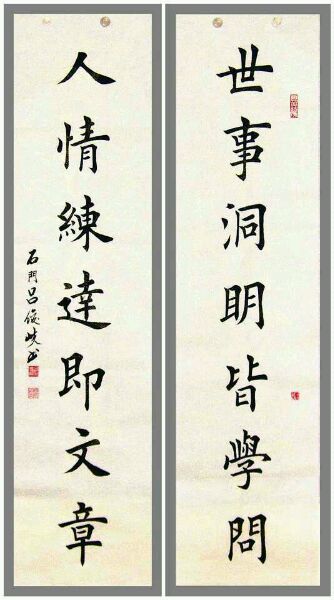 世事洞明皆學問
人情練達即文章
石門呂俊岐书